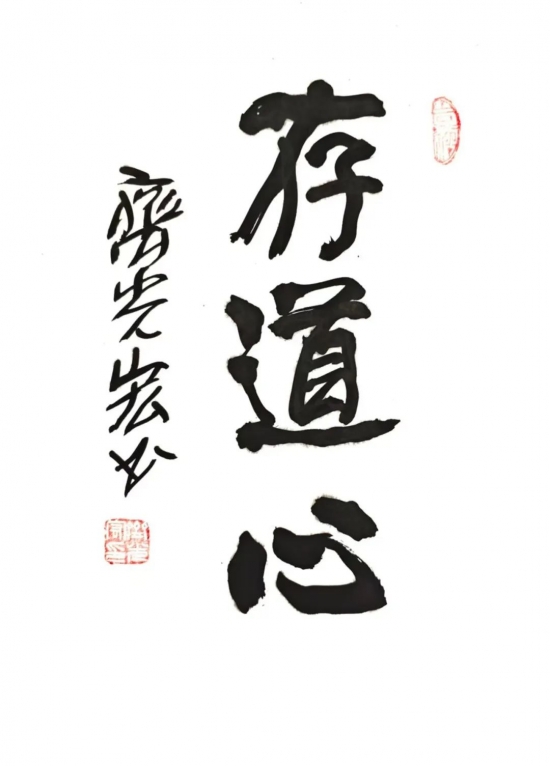 存道心
齊光宏书